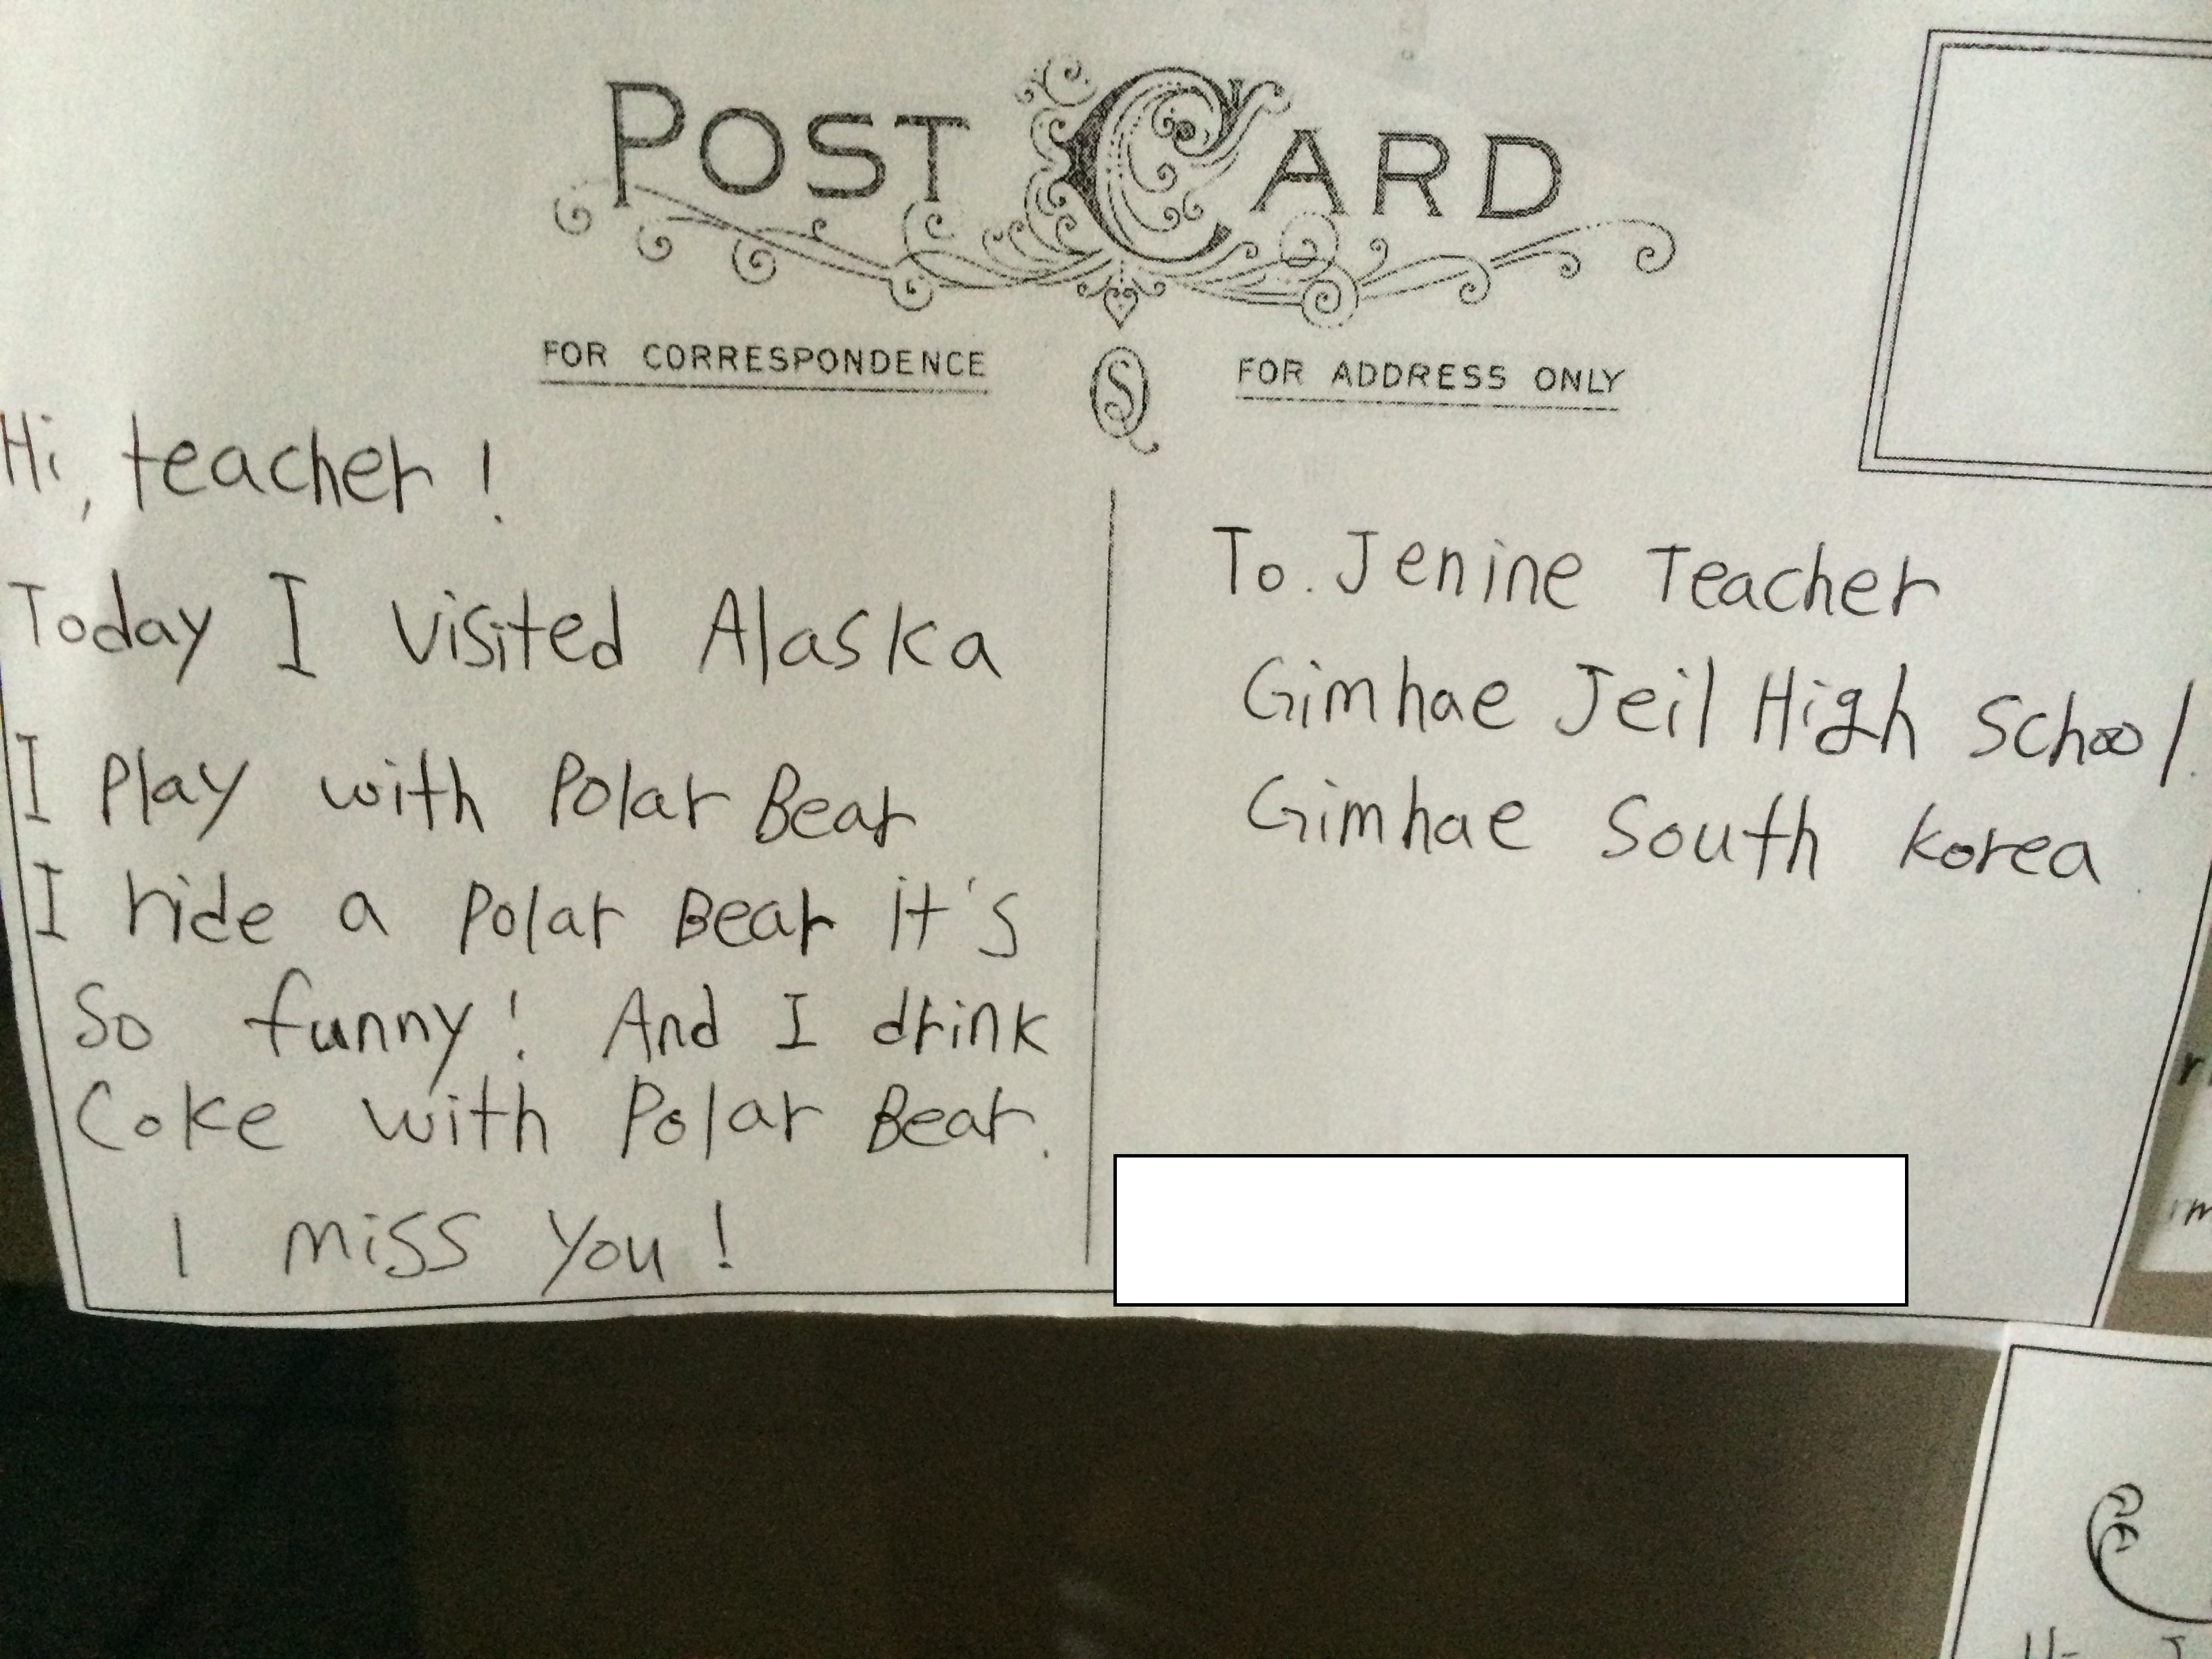 POST CARD
FOR CORRESPONDENCE
FOR ADDRESS ONLY
Hi, teacher!
Today I visited Alaska
I Play with Polar Bear
I ride a Polar Bear it's
So funny! And I drink
Coke with Polar Bear.
I miss you!
To. Jenine Teacher
Gimhae Jeil High School.
Gimhae South Korea.